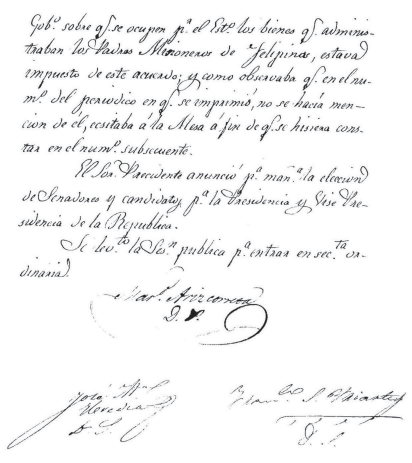 Gob.º sobre q.ᵉ se ocupen p.ª el Est.º los bienes q.ᵉ adminis-
traban los Padres Misioneros de Felipinas, estava
impuesto de este acuerdo; y como observaba q.ᵉ en el nu-
m.º del periodico en q.ᵉ se imprimió, no se hacía men-
cion de él, ecsitaba á la Mesa á fin de q.ᵉ se hisiera cons-
tar en el num.º subsecuente.
El Sor. Precidente anunció p.ª mañ.ª la eleccion
de Senadores y candidatos p.ª la Presidencia y Vise Pre-
sidencia de la Republica.
Se lev.ᵗᵒ la Ses.ⁿ publica p.ª entrar en sec.ᵗᵃ or-
dinaria.
Mar.º Arizcorreta
D. P.
José M.ª
Heredia
D. S.
D. S.